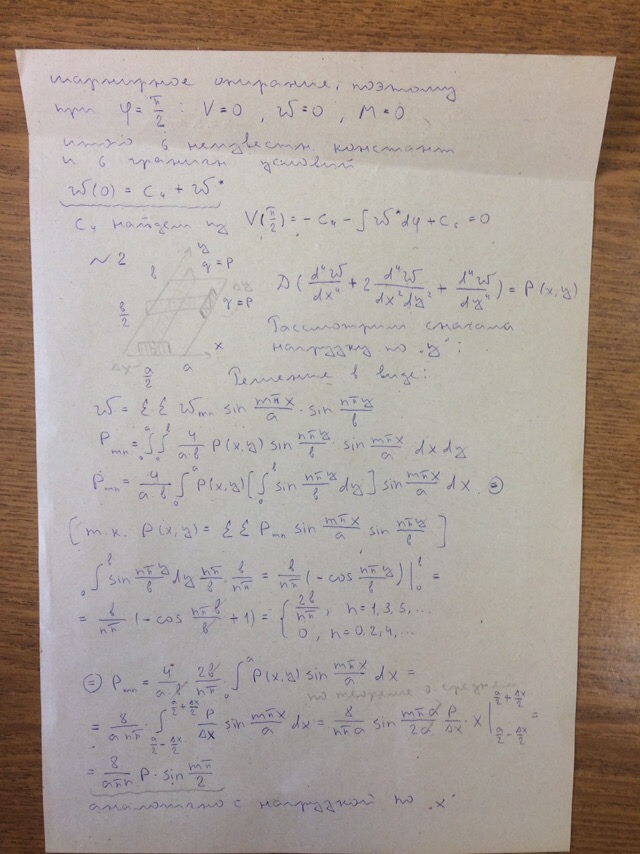 шарнирное опирание, поэтому
при φ = π/2 : V = 0 , W = 0 , M = 0
итого 6 неизвестн. констант
и 6 граничн условий
W(0) = C₄ + W*
C₄ найдем из V(π/2) = - C₄ - ∫ W* dφ + C₆ = 0
~ 2
y
q = P
b
Δy
q = P
b/2
x
Δx
a/2
a
D ( d⁴W/dx⁴ + 2 d⁴W/dx²dy² + d⁴W/dy⁴ ) = P (x,y)
Рассмотрим сначала
нагрузку по "y":
Решение в виде:
W = Σ Σ Wmn sin mπx/a · sin nπy/b
Pmn = ∫₀ᵃ ∫₀ᵇ 4/a·b P(x,y) sin nπy/b · sin mπx/a dx dy
Pmn = 4/a·b ∫₀ᵃ P(x,y) [ ∫₀ᵇ sin nπy/b dy ] sin mπx/a dx ⊜
[ т.к. P(x,y) = Σ Σ Pmn sin mπx/a sin nπy/b ]
∫₀ᵇ sin nπy/b dy nπ/b · b/nπ = b/nπ (- cos nπy/b ) |₀ᵇ =
= b/nπ (- cos nπb/b + 1) = { 2b/nπ , n = 1,3,5,...
0 , n = 0,2,4,...
⊜ Pmn = 4/a·b · 2b/nπ ∫₀ᵃ P(x,y) sin mπx/a dx =
по теореме о среднем
= 8/anπ · ∫ (a/2 - Δx/2) (a/2 + Δx/2) P/Δx sin mπx/a dx = 8/nπa sin mπa/2a P/Δx · X | (a/2 - Δx/2) (a/2 + Δx/2) =
= 8/aπn P · sin mπ/2
аналогично с нагрузкой по "x"